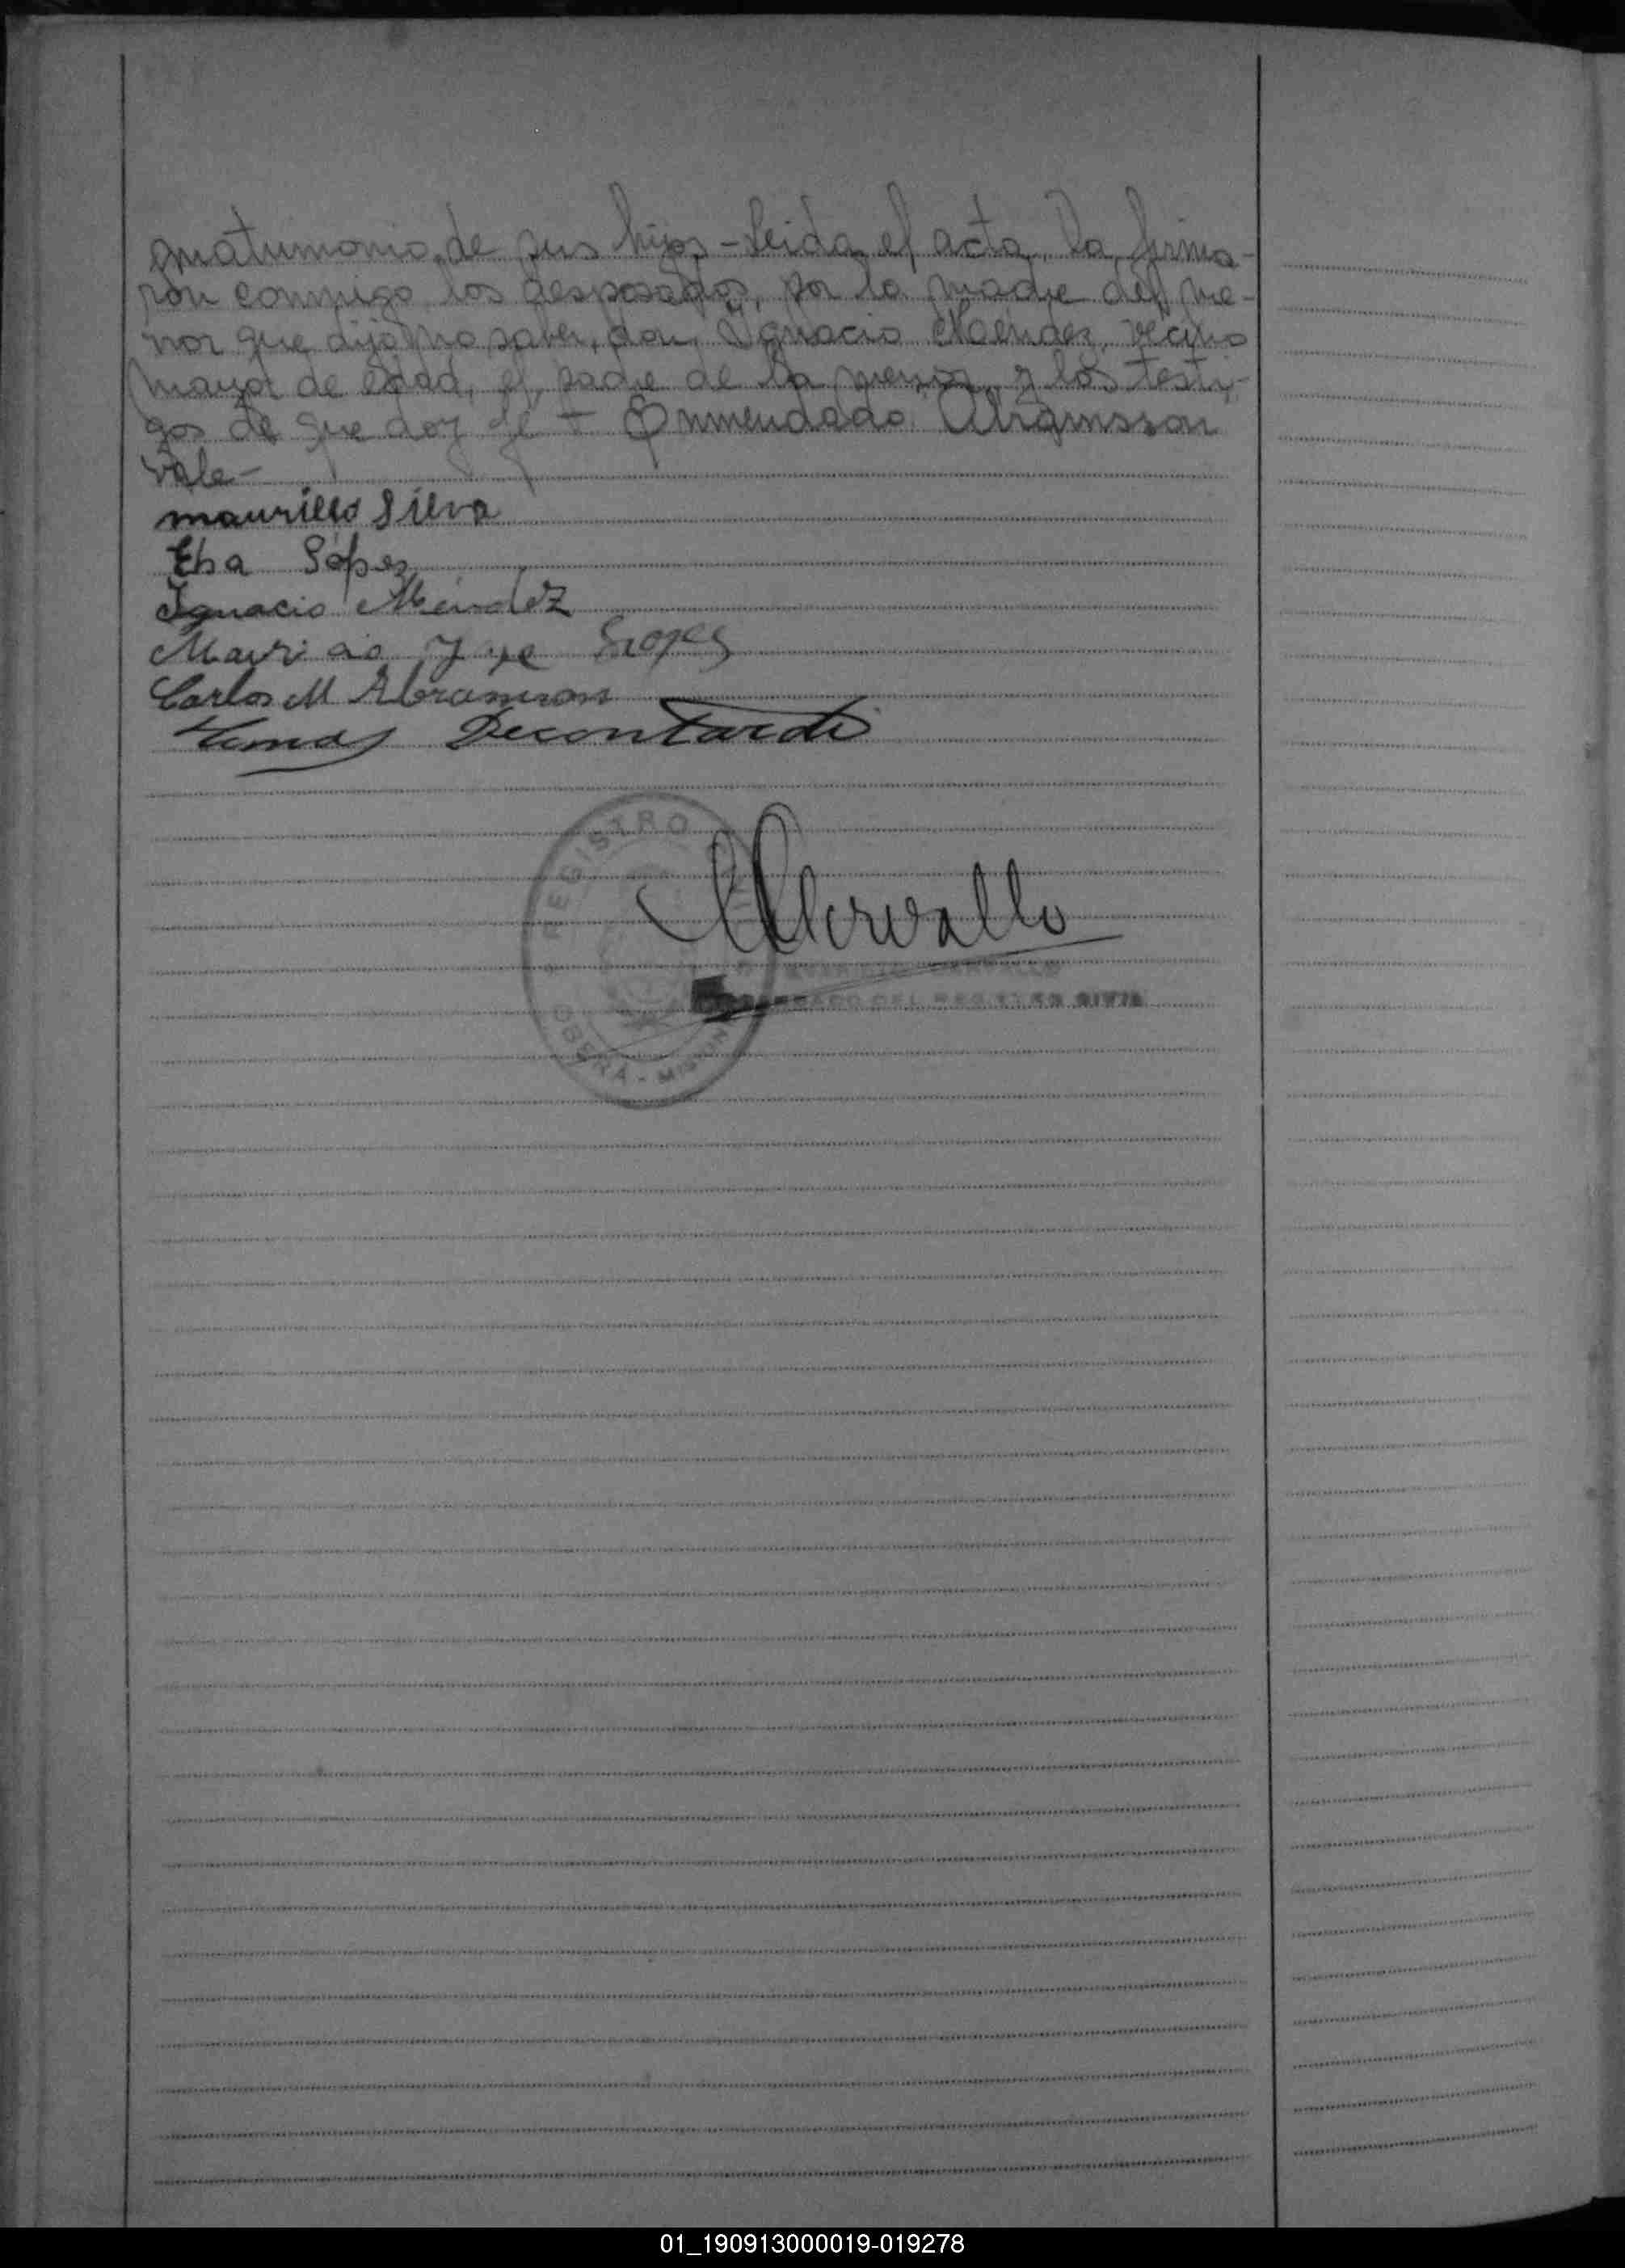 matrimonio de sus hijos - Leida el acta, la firma-
ron conmigo los desposados, por la madre del me-
nor que dijo no saber, don Ignacio Méndez, vecino
mayor de edad, el padre de la menor y los testi-
gos de que doy fe - Enmendado:
Vale-
maurilio Silva
Eba López
Ignacio Méndez
Lopez
Carlos M Abramson
Tomas Decontardi
REGISTRO
OBERA - MISIONES
Carvallo
ENCARGADO DEL REGISTRO CIVIL
01_190913000019-019278